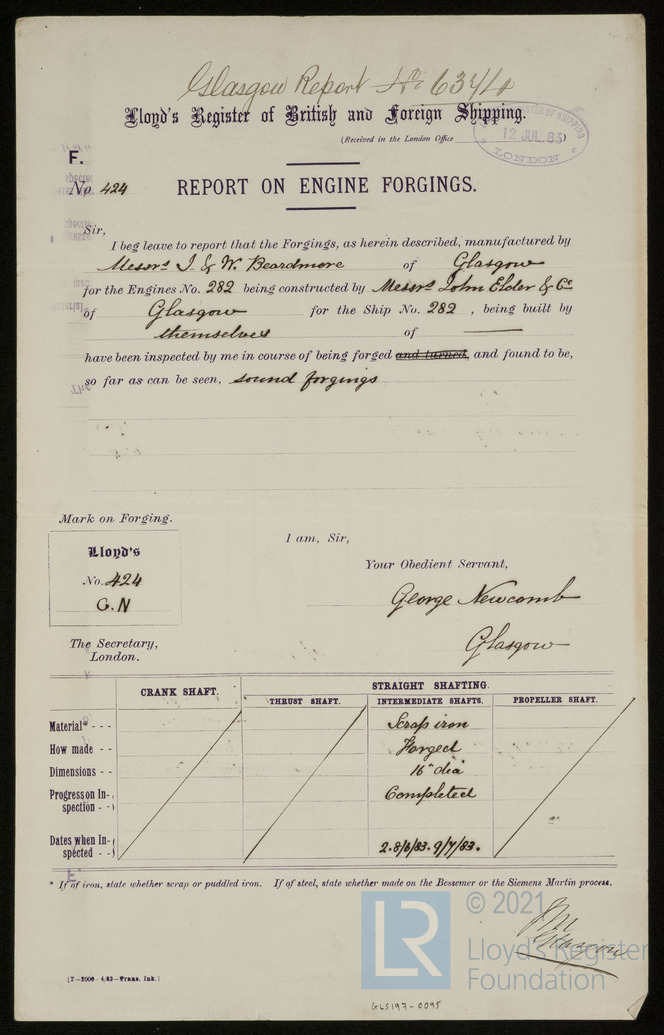 Glasgow Report No
Lloyd's Register of British and Foreign Shipping.
(Received in the London Office 12 JUL. 83)
LONDON
F.
No. 424
REPORT ON ENGINE FORGINGS.
Sir,
I beg leave to report that the Forgings, as herein described, manufactured by
Messrs. J. & W. Beardmore of Glasgow
for the Engines No. 282 being constructed by Messrs John Elder & Co
of Glasgow for the Ship No. 282 , being built by
themselves of
have been inspected by me in course of being forged and turned, and found to be,
so far as can be seen, sound forgings
Mark on Forging.
Lloyd's
No. 424
G.N
I am, Sir,
Your Obedient Servant,
George Newcomb
Glasgow
The Secretary,
London.
CRANK SHAFT.
STRAIGHT SHAFTING.
THRUST SHAFT. INTERMEDIATE SHAFTS. PROPELLER SHAFT.
Material* - - Scrap iron
How made - - Forged
Dimensions - - 16" dia
Progress on In-
spection - - Completed
Dates when In-
spected - - 2.8/6/83. 9/7/83.
* If of iron, state whether scrap or puddled iron. If of steel, state whether made on the Bessemer or the Siemens Martin process.
Glasgow
[T-2000-4/83-Trans. Ink.]
GLS197-0095
LR
© 2021
Lloyd's Register
Foundation